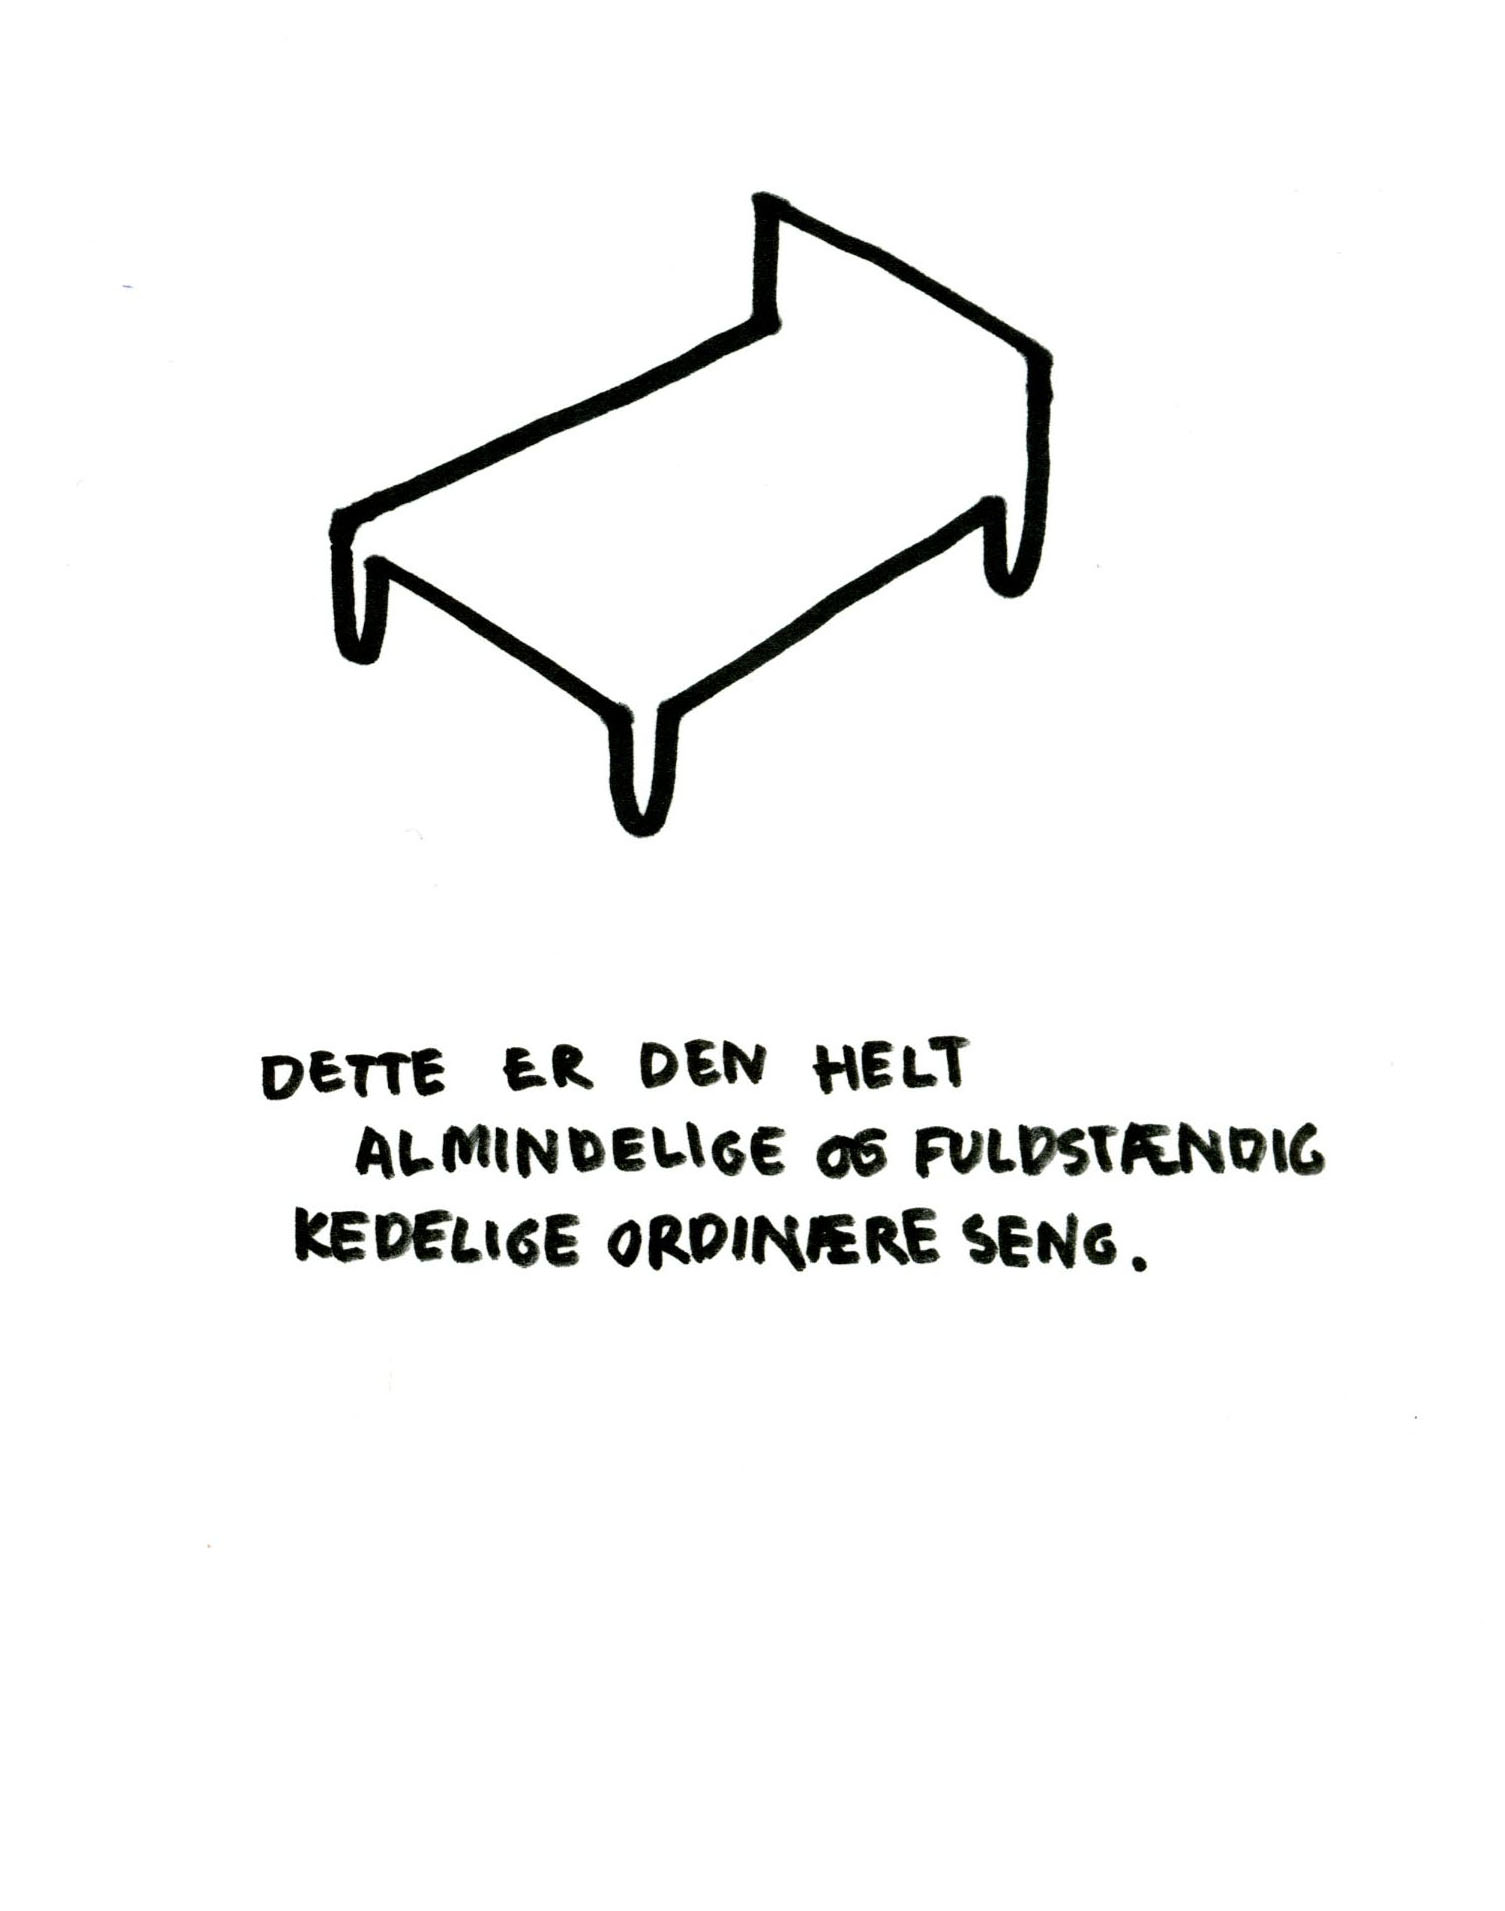 DETTE ER DEN HELT
ALMINDELIGE OG FULDSTÆNDIG
KEDELIGE ORDINÆRE SENG.